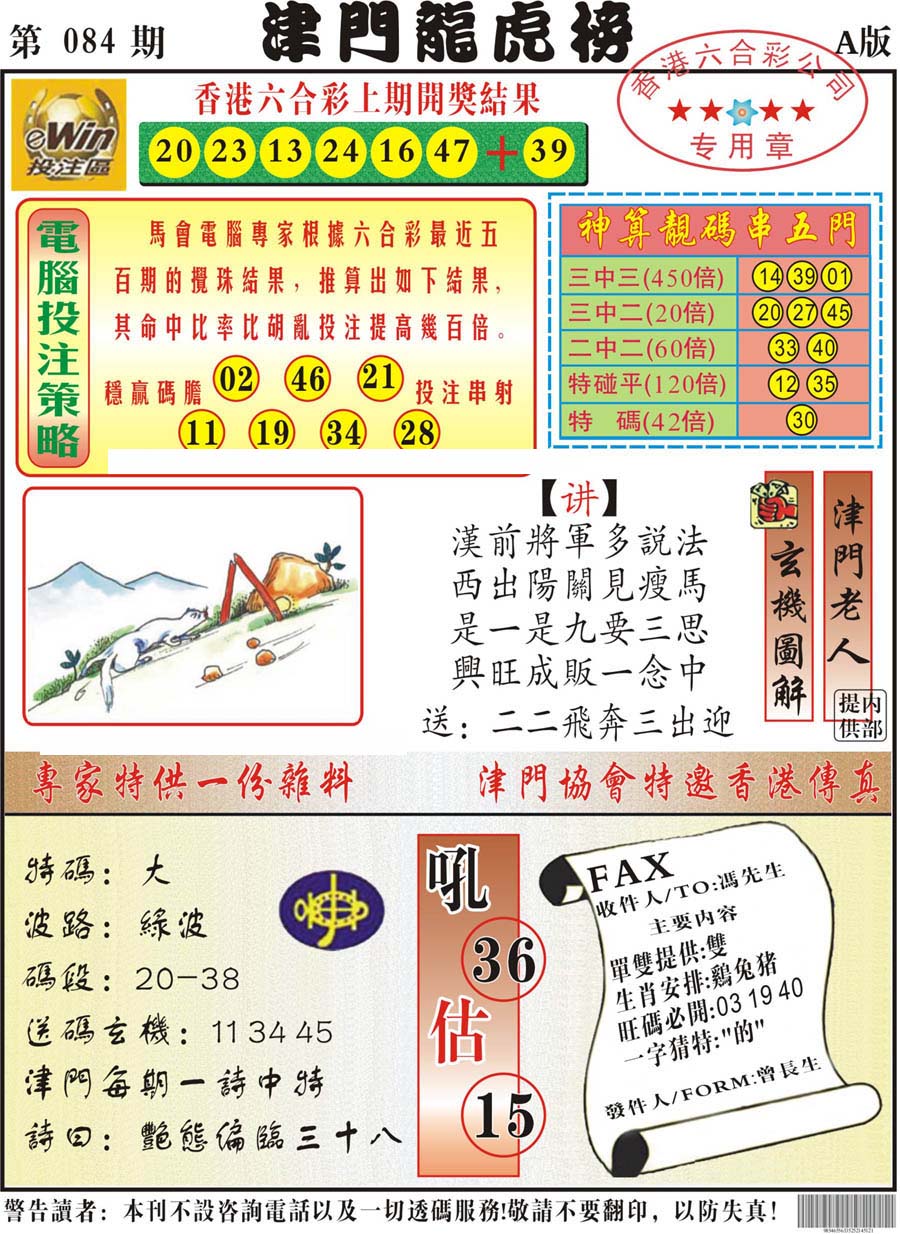 第 084 期
津門龍虎榜
A版
eWin
投注區
香港六合彩上期開獎結果
20 23 13 24 16 47 + 39
香港六合彩公司
专用章
電腦投注策略
馬會電腦專家根據六合彩最近五
百期的攪珠結果，推算出如下結果，
其命中比率比胡亂投注提高幾百倍。
穩贏碼膽 02 46 21 投注串射
11 19 34 28
神算靚碼串五門
三中三(450倍) 14 39 01
三中二(20倍) 20 27 45
二中二(60倍) 33 40
特碰平(120倍) 12 35
特 碼(42倍) 30
【讲】
漢前將軍多説法
西出陽關見瘦馬
是一是九要三思
興旺成販一念中
送：二二飛奔三出迎
玄機圖解
津門老人
内部提供
專家特供一份雜料
津門協會特邀香港傳真
特碼：大
波路：綠波
碼段：20-38
送碼玄機：11 34 45
津門每期一詩中特
詩曰：艷態偏臨三十八
吼
36
估
15
FAX
收件人/TO:馮先生
主要内容
單雙提供:雙
生肖安排:鷄兔猪
旺碼必開:03 19 40
一字猜特:"的"
發件人/FORM:曾長生
警告讀者：本刊不設咨詢電話以及一切透碼服務!敬請不要翻印，以防失真!